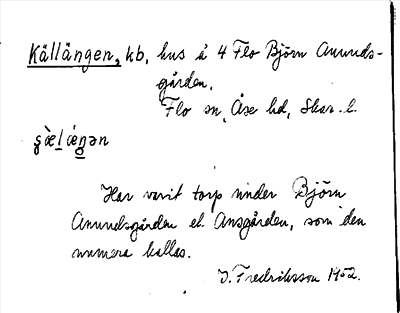 Källängen, kb, hus å 4 Flo Björn Anunds-
gården,
Flo sn, Åse hd, Skar. l.
Har varit torp under Björn
Anundsgården el. Ansgården, som den
numera kallas.
J. Fredriksson 1952.